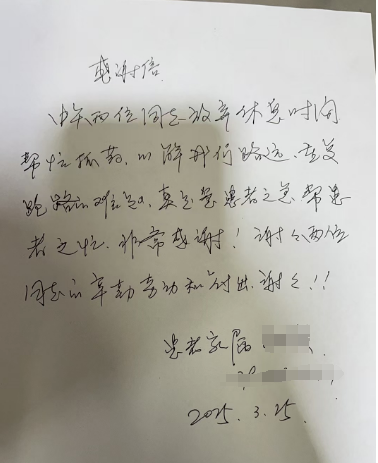 感谢信
中午两位同志放弃休息时间
帮忙抓药,以解我们路远,重复
跑路的难题,真是急患者之急,帮患
者之忙,非常感谢!谢谢两位
同志的辛勤劳动和付出,谢谢!!
患者家属
2025.3.25.